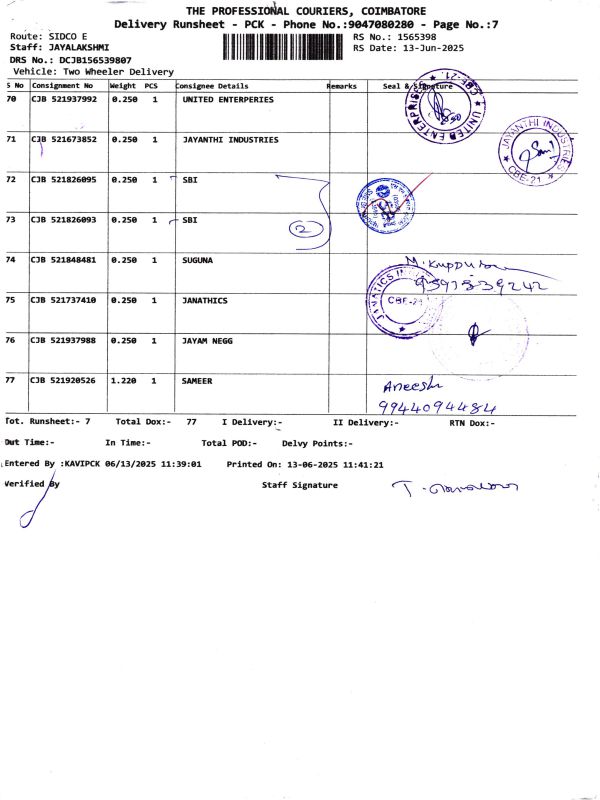 THE PROFESSIONAL COURIERS, COIMBATORE
Delivery Runsheet - PCK - Phone No.:9047080280 - Page No.:7
Route: SIDCO E
RS No.: 1565398
Staff: JAYALAKSHMI
RS Date: 13-Jun-2025
DRS No.: DCJB156539807
Vehicle: Two Wheeler Delivery
S No Consignment No Weight PCS Consignee Details Remarks Seal & Signature
70 CJB 521937992 0.250 1 UNITED ENTERPERIES
UNITED ENTERPRISES CBE-21
71 CJB 521673852 0.250 1 JAYANTHI INDUSTRIES
JAYANTHI INDUSTRIES CBE-21
72 CJB 521826095 0.250 1 SBI
73 CJB 521826093 0.250 1 SBI
2
74 CJB 521848481 0.250 1 SUGUNA
75 CJB 521737410 0.250 1 JANATHICS
CBE-21
76 CJB 521937988 0.250 1 JAYAM NEGG
77 CJB 521920526 1.220 1 SAMEER
Aneesh
9944094484
Tot. Runsheet:- 7 Total Dox:- 77 I Delivery:- II Delivery:- RTN Dox:-
Out Time:- In Time:- Total POD:- Delvy Points:-
Entered By :KAVIPCK 06/13/2025 11:39:01 Printed On: 13-06-2025 11:41:21
Verified By Staff Signature